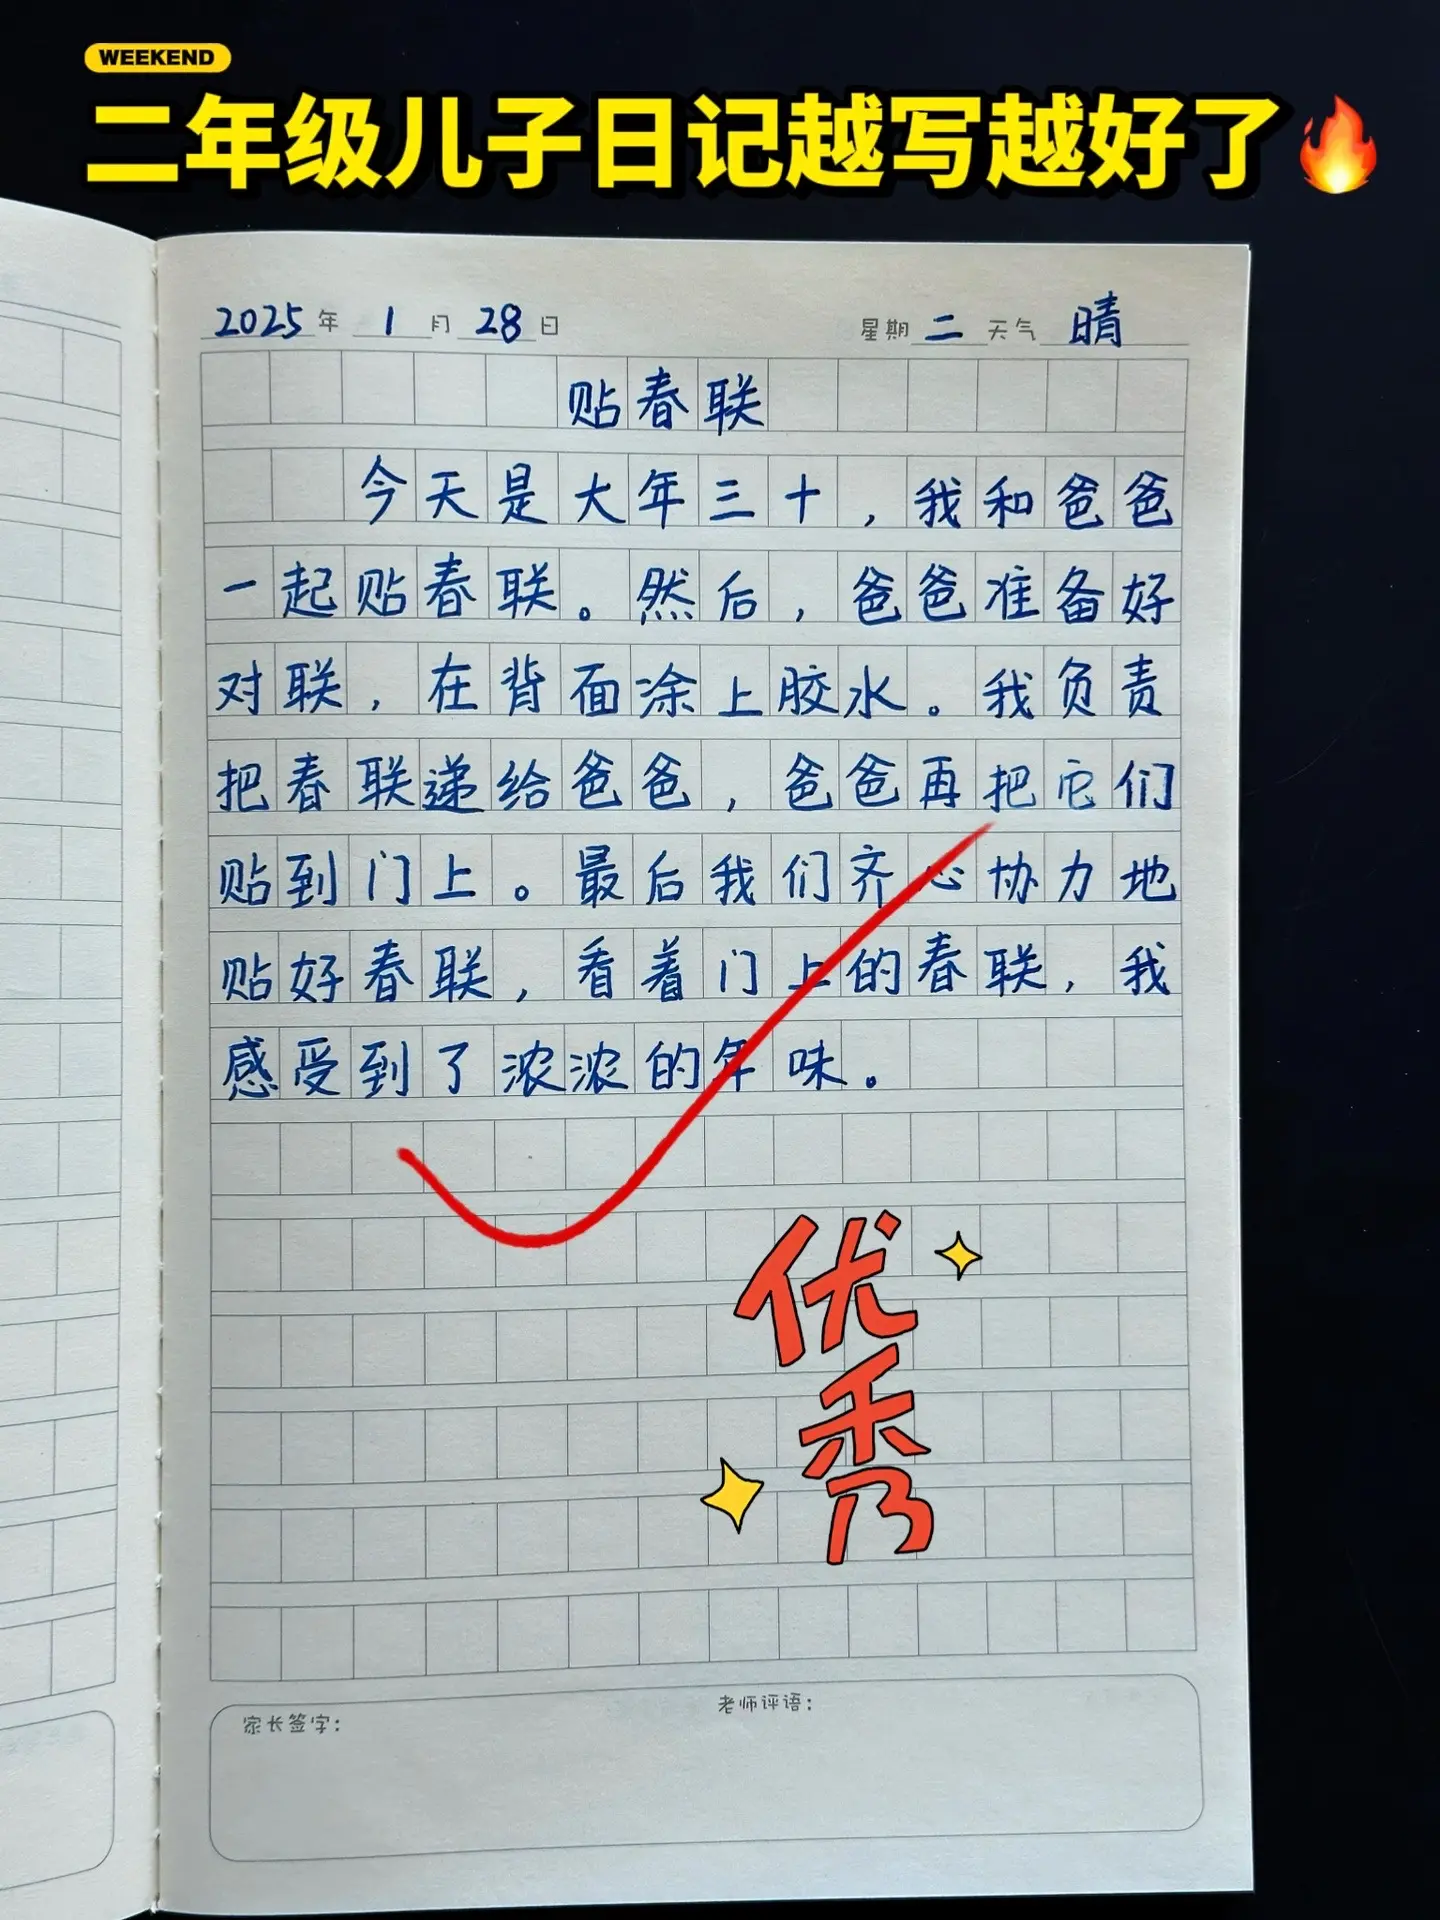 WEEKEND
二年级儿子日记越写越好了
2025年 1月 28日 星期二 天气 晴
贴春联
今天是大年三十，我和爸爸
一起贴春联。然后，爸爸准备好
对联，在背面涂上胶水。我负责
把春联递给爸爸，爸爸再把它们
贴到门上。最后我们齐心协力地
贴好春联，看着门上的春联，我
感受到了浓浓的年味。
优秀
家长签字：
老师评语：